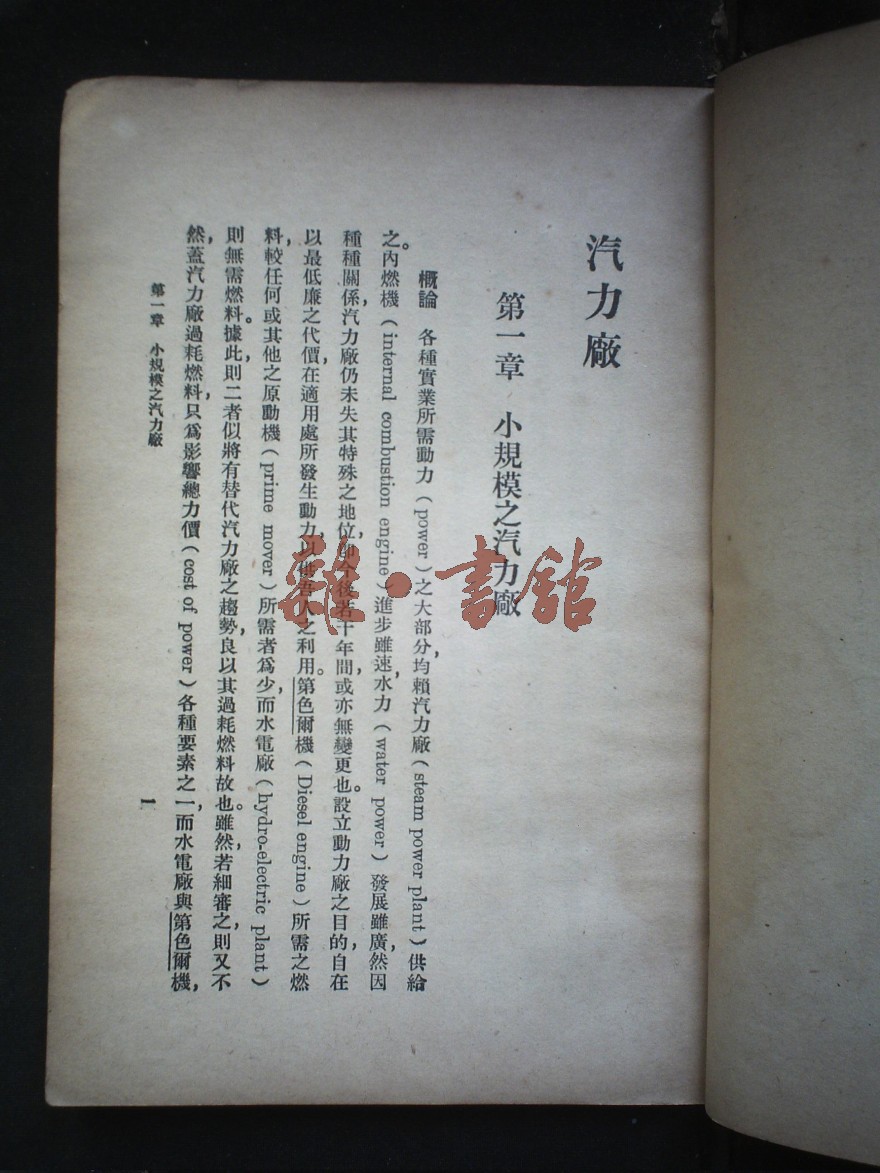 汽力廠
第一章 小規模之汽力廠
概論 各種實業所需動力(power)之大部分,均賴汽力廠(steam power plant)供給
之。內燃機(internal combustion engine)進步雖速,水力(water power)發展雖廣,然因
種種關係,汽力廠仍未失其特殊之地位,即今後若干年間,或亦無變更也。設立動力廠之目的,自在
以最低廉之代價,在適用處所發生動力,以供吾人之利用。第色爾機(Diesel engine)所需之燃
料,較任何或其他之原動機(prime mover)所需者爲少,而水電廠(hydro-electric plant)
則無需燃料。據此,則二者似將有替代汽力廠之趨勢,良以其過耗燃料故也。雖然,若細審之,則又不
然,蓋汽力廠過耗燃料,只爲影響總力價(cost of power)各種要素之一,而水電廠與第色爾機,
第一章 小規模之汽力廠
1
雜·書館